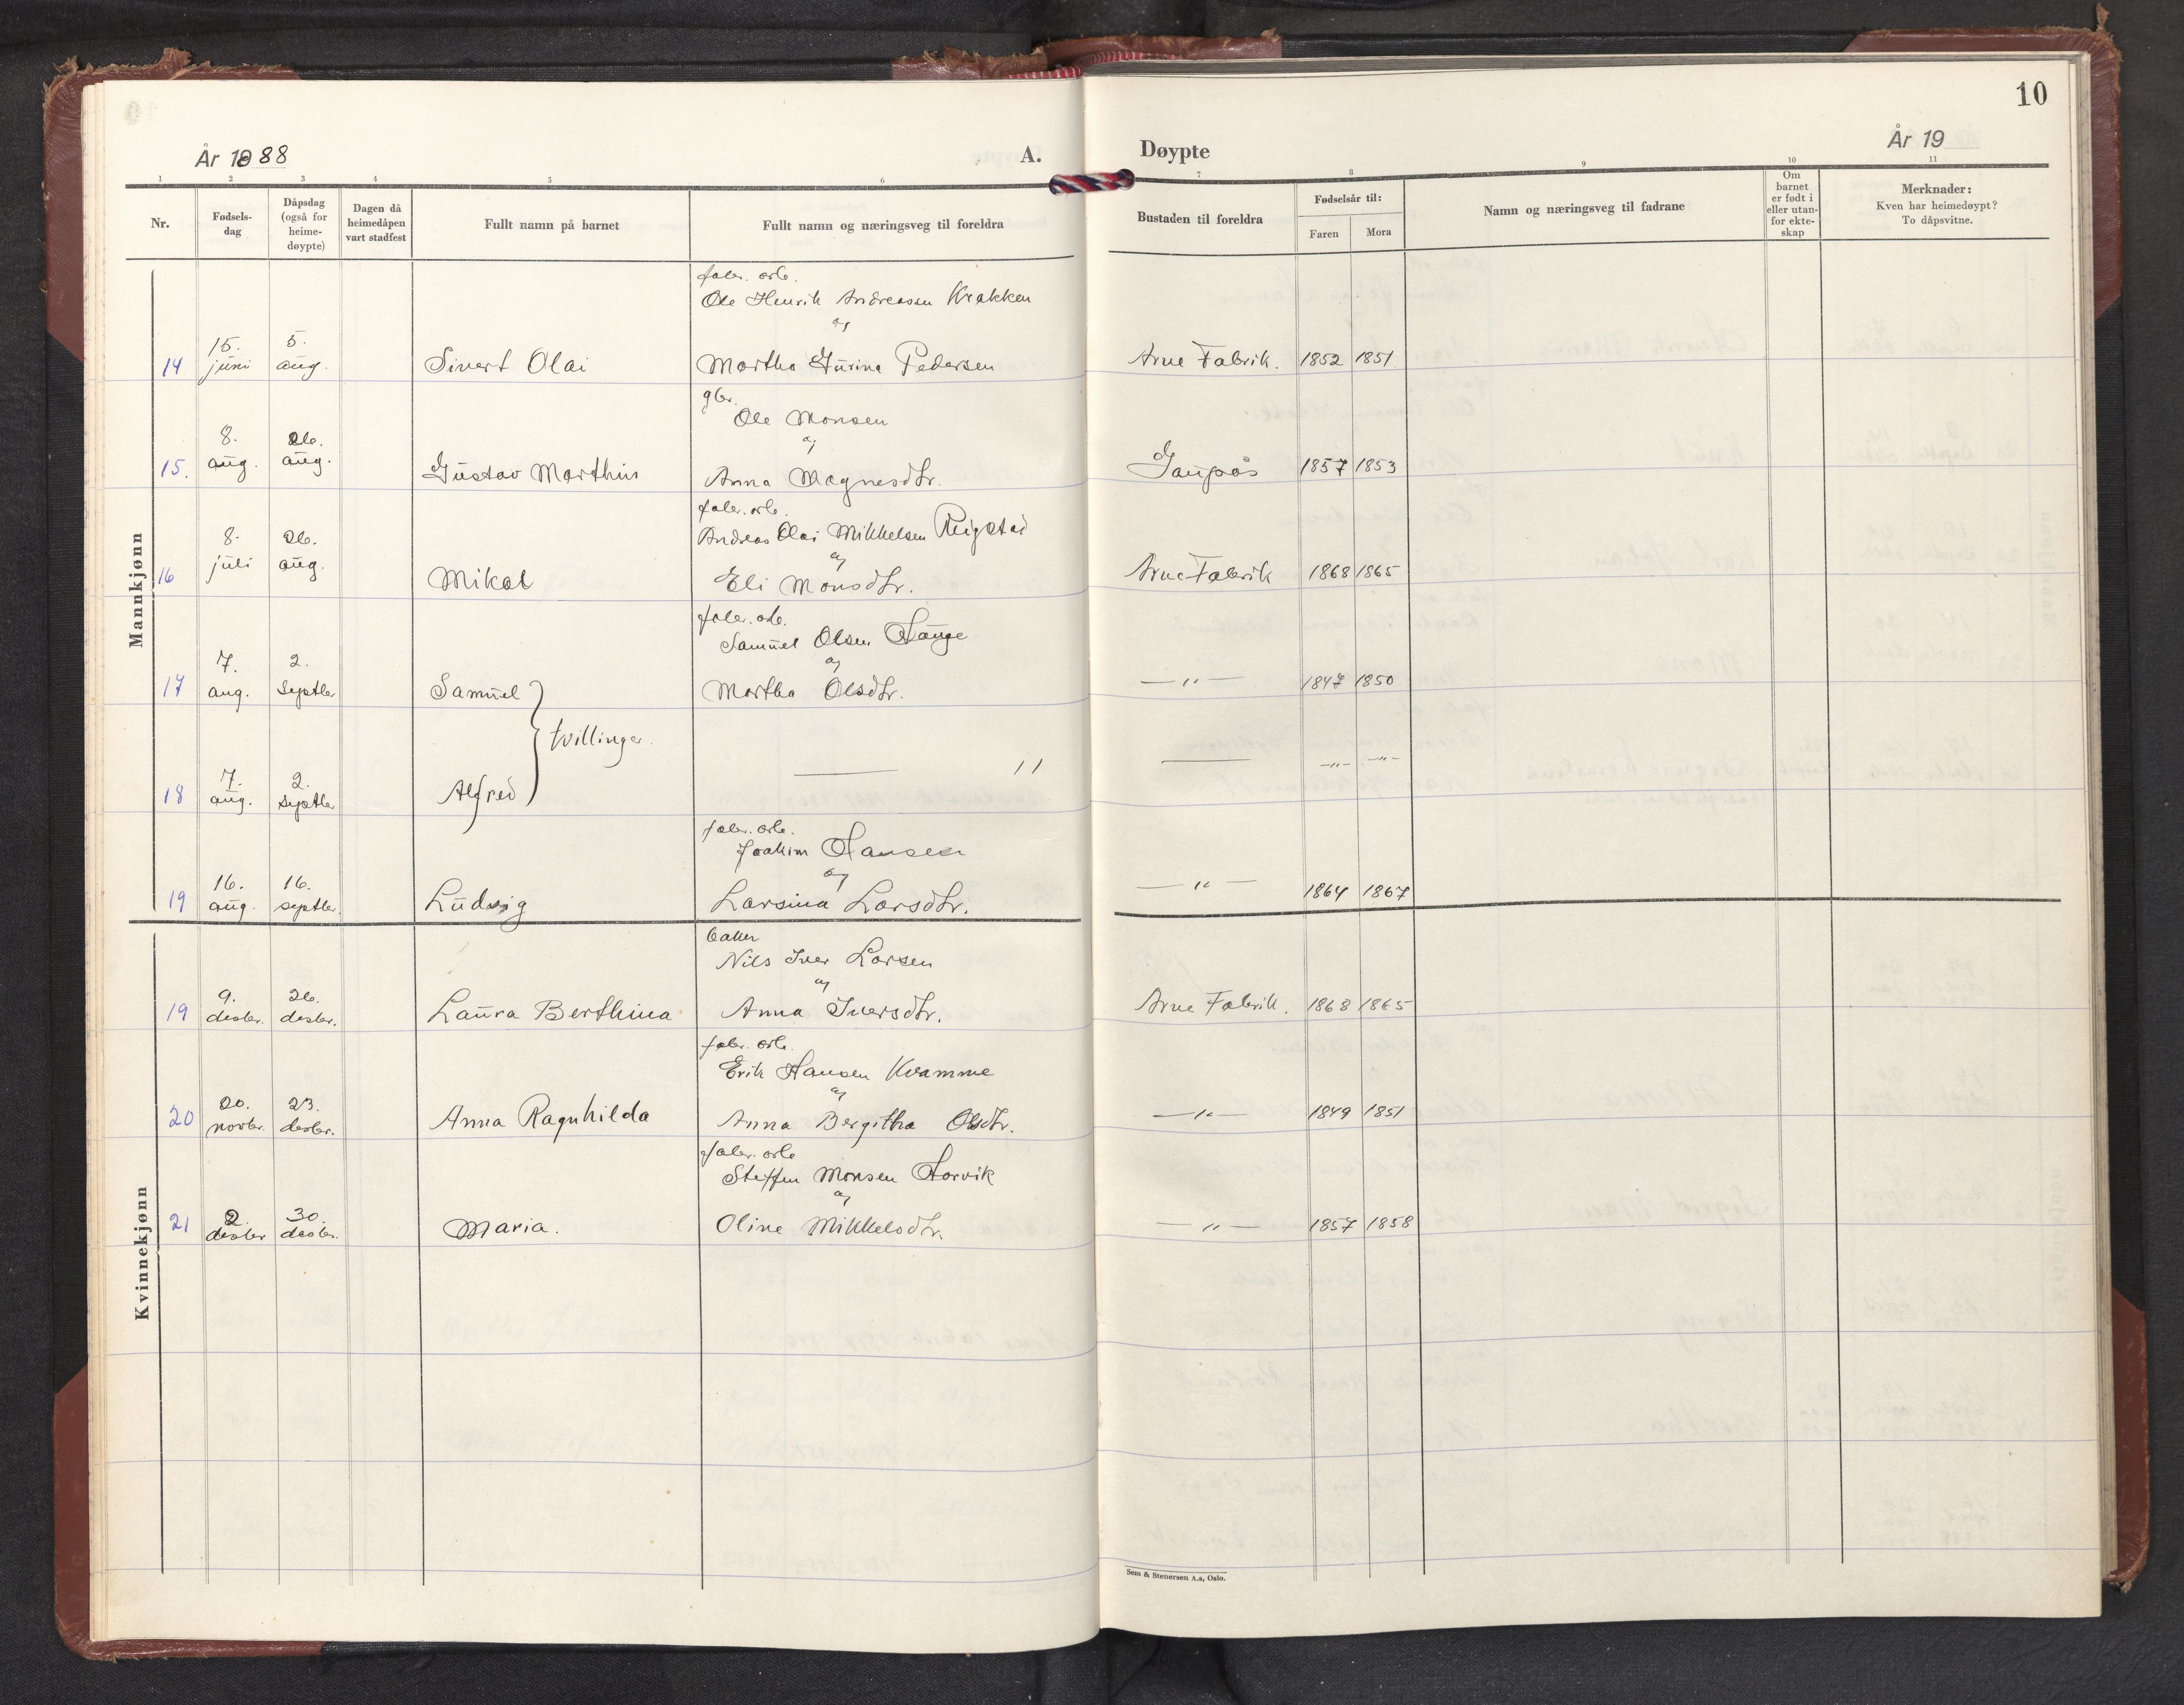 10
År 1888
A.
Døypte
År 19
1 2 3 4 5 6 7 8 9 10 11
Nr.
Fødsels-
dag
Dåpsdag
(også for
heime-
døypte)
Dagen då
heimedåpen
vart stadfest
Fullt namn på barnet
Fullt namn og næringsveg til foreldra
Bustaden til foreldra
Fødselsår til:
Faren
Mora
Namn og næringsveg til fadrane
Om
barnet
er født i
eller utan-
for ekte-
skap
Merknader:
Kven har heimedøypt?
To dåpsvitne.
Mannkjønn
fabr. arb.
Ole Henrik Andreassen Krakken
og
15. 5.
14 juni aug. Sivert Olai Martha Gurine Pedersen Arne Fabrik. 1852 1851
gbr.
Ole Monsen
og
8. 26.
15. aug. aug. Gustav Marthin Anna Magnesdtr. Gaupås 1857 1853
fabr. arb.
Andreas Olai Mikkelsen Reigstad
og
8. 26.
16 juli aug. Mikal Eli Monsdtr. Arne Fabrik 1868 1865
fabr. arb.
Samuel Olsen Hauge
og
7. 2.
17 aug. septbr Samuel Martha Olsdtr. —"— 1847 1850
tvillinger.
7. 2.
18 aug. septbr Alfred — " — —"— —"—
fabr. arb.
Joakim Hansen
og
16. 16.
19 aug. septbr. Ludvig Larsina Larsdtr. —"— 1864 1867
Kvinnekjønn
baker
Nils Iver Larsen
og
9. 26.
19 desbr. desbr. Laura Berthina Anna Iversdtr. Arne Fabrik. 1868 1865
fabr. arb.
Erik Hansen Kvamme
og
20. 23.
20 novbr. desbr. Anna Ragnhilda Anna Bergitha Olsdtr. —"— 1849 1851
fabr. arb
Steffen Monsen Horvik
og
2. 30.
21 desbr desbr. Maria. Oline Mikkelsdtr. —"— 1857 1858
Sem & Stenersen A.s, Oslo.